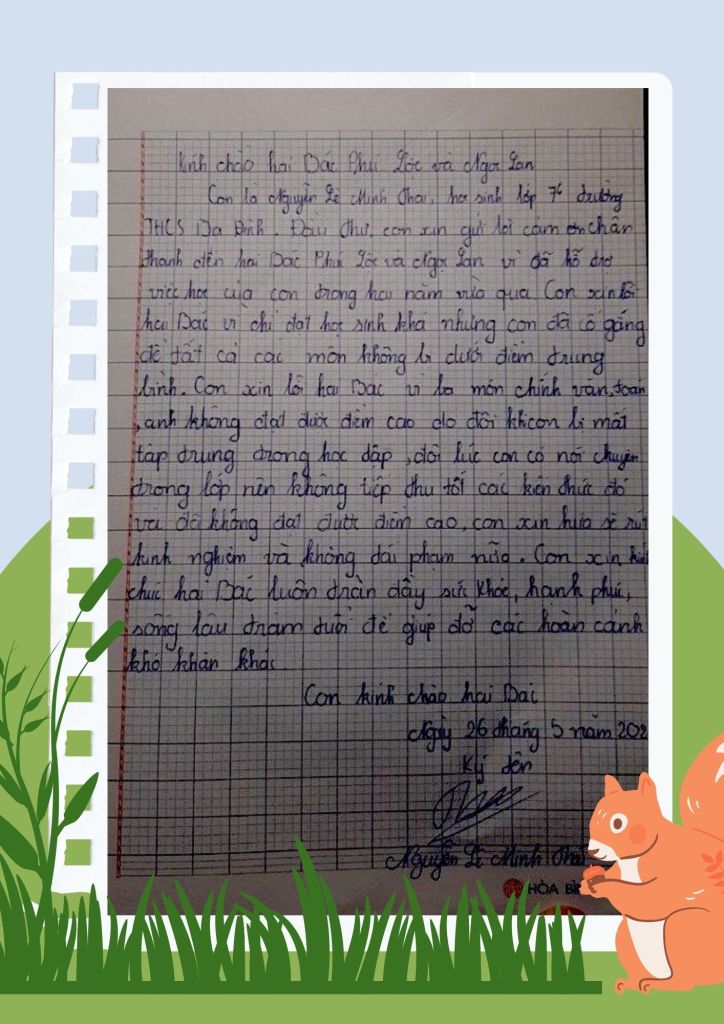 Kính chào hai Bác Phú Lộc và Ngọc Lan
Con là Nguyễn Lê Minh Thai, học sinh lớp 7⁶ trường
THCS Ba Đình. Đầu thư, con xin gửi lời cảm ơn chân
thành đến hai Bác Phú Lộc và Ngọc Lan vì đã hỗ trợ
việc học của con trong hai năm vừa qua. Con xin lỗi
hai Bác vì chỉ đạt học sinh khá nhưng con đã cố gắng
để tất cả các môn không bị dưới điểm trung
bình. Con xin lỗi hai Bác vì ba môn chính văn, toán
, anh không đạt được điểm cao do đôi khi con bị mất
tập trung trong học tập, đôi lúc con có nói chuyện
trong lớp nên không tiếp thu tốt các kiến thức đó
và đã không đạt được điểm cao, con xin hứa sẽ rút
kinh nghiệm và không tái phạm nữa. Con xin kính
chúc hai Bác luôn tràn đầy sức khỏe, hạnh phúc,
sống lâu trăm tuổi để giúp đỡ các hoàn cảnh
khó khăn khác
Con kính chào hai Bác
Ngày 26 tháng 5 năm 202
Ký tên
Nguyễn Lê Minh
HÒA BÌ